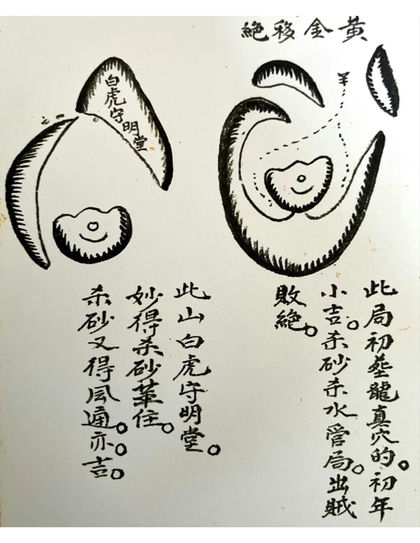 黃金移絕
此局初塟龍真穴的。初年
小吉。杀砂杀水管局。出賊
敗絕。
白虎守明堂
此山白虎守明堂。
妙得杀砂葉住。
杀砂又得風通。亦吉。